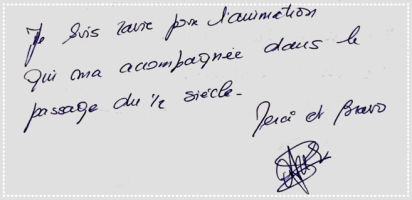 Je suis ravie pour l'animation
qui m'a accompagnée dans le
passage du ½ siècle.
Merci et Bravo